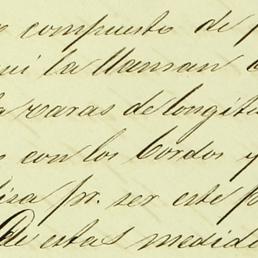 compuesto de
la llaman
varas de longit
con los bordos y
pr. ser este p
De estas medid